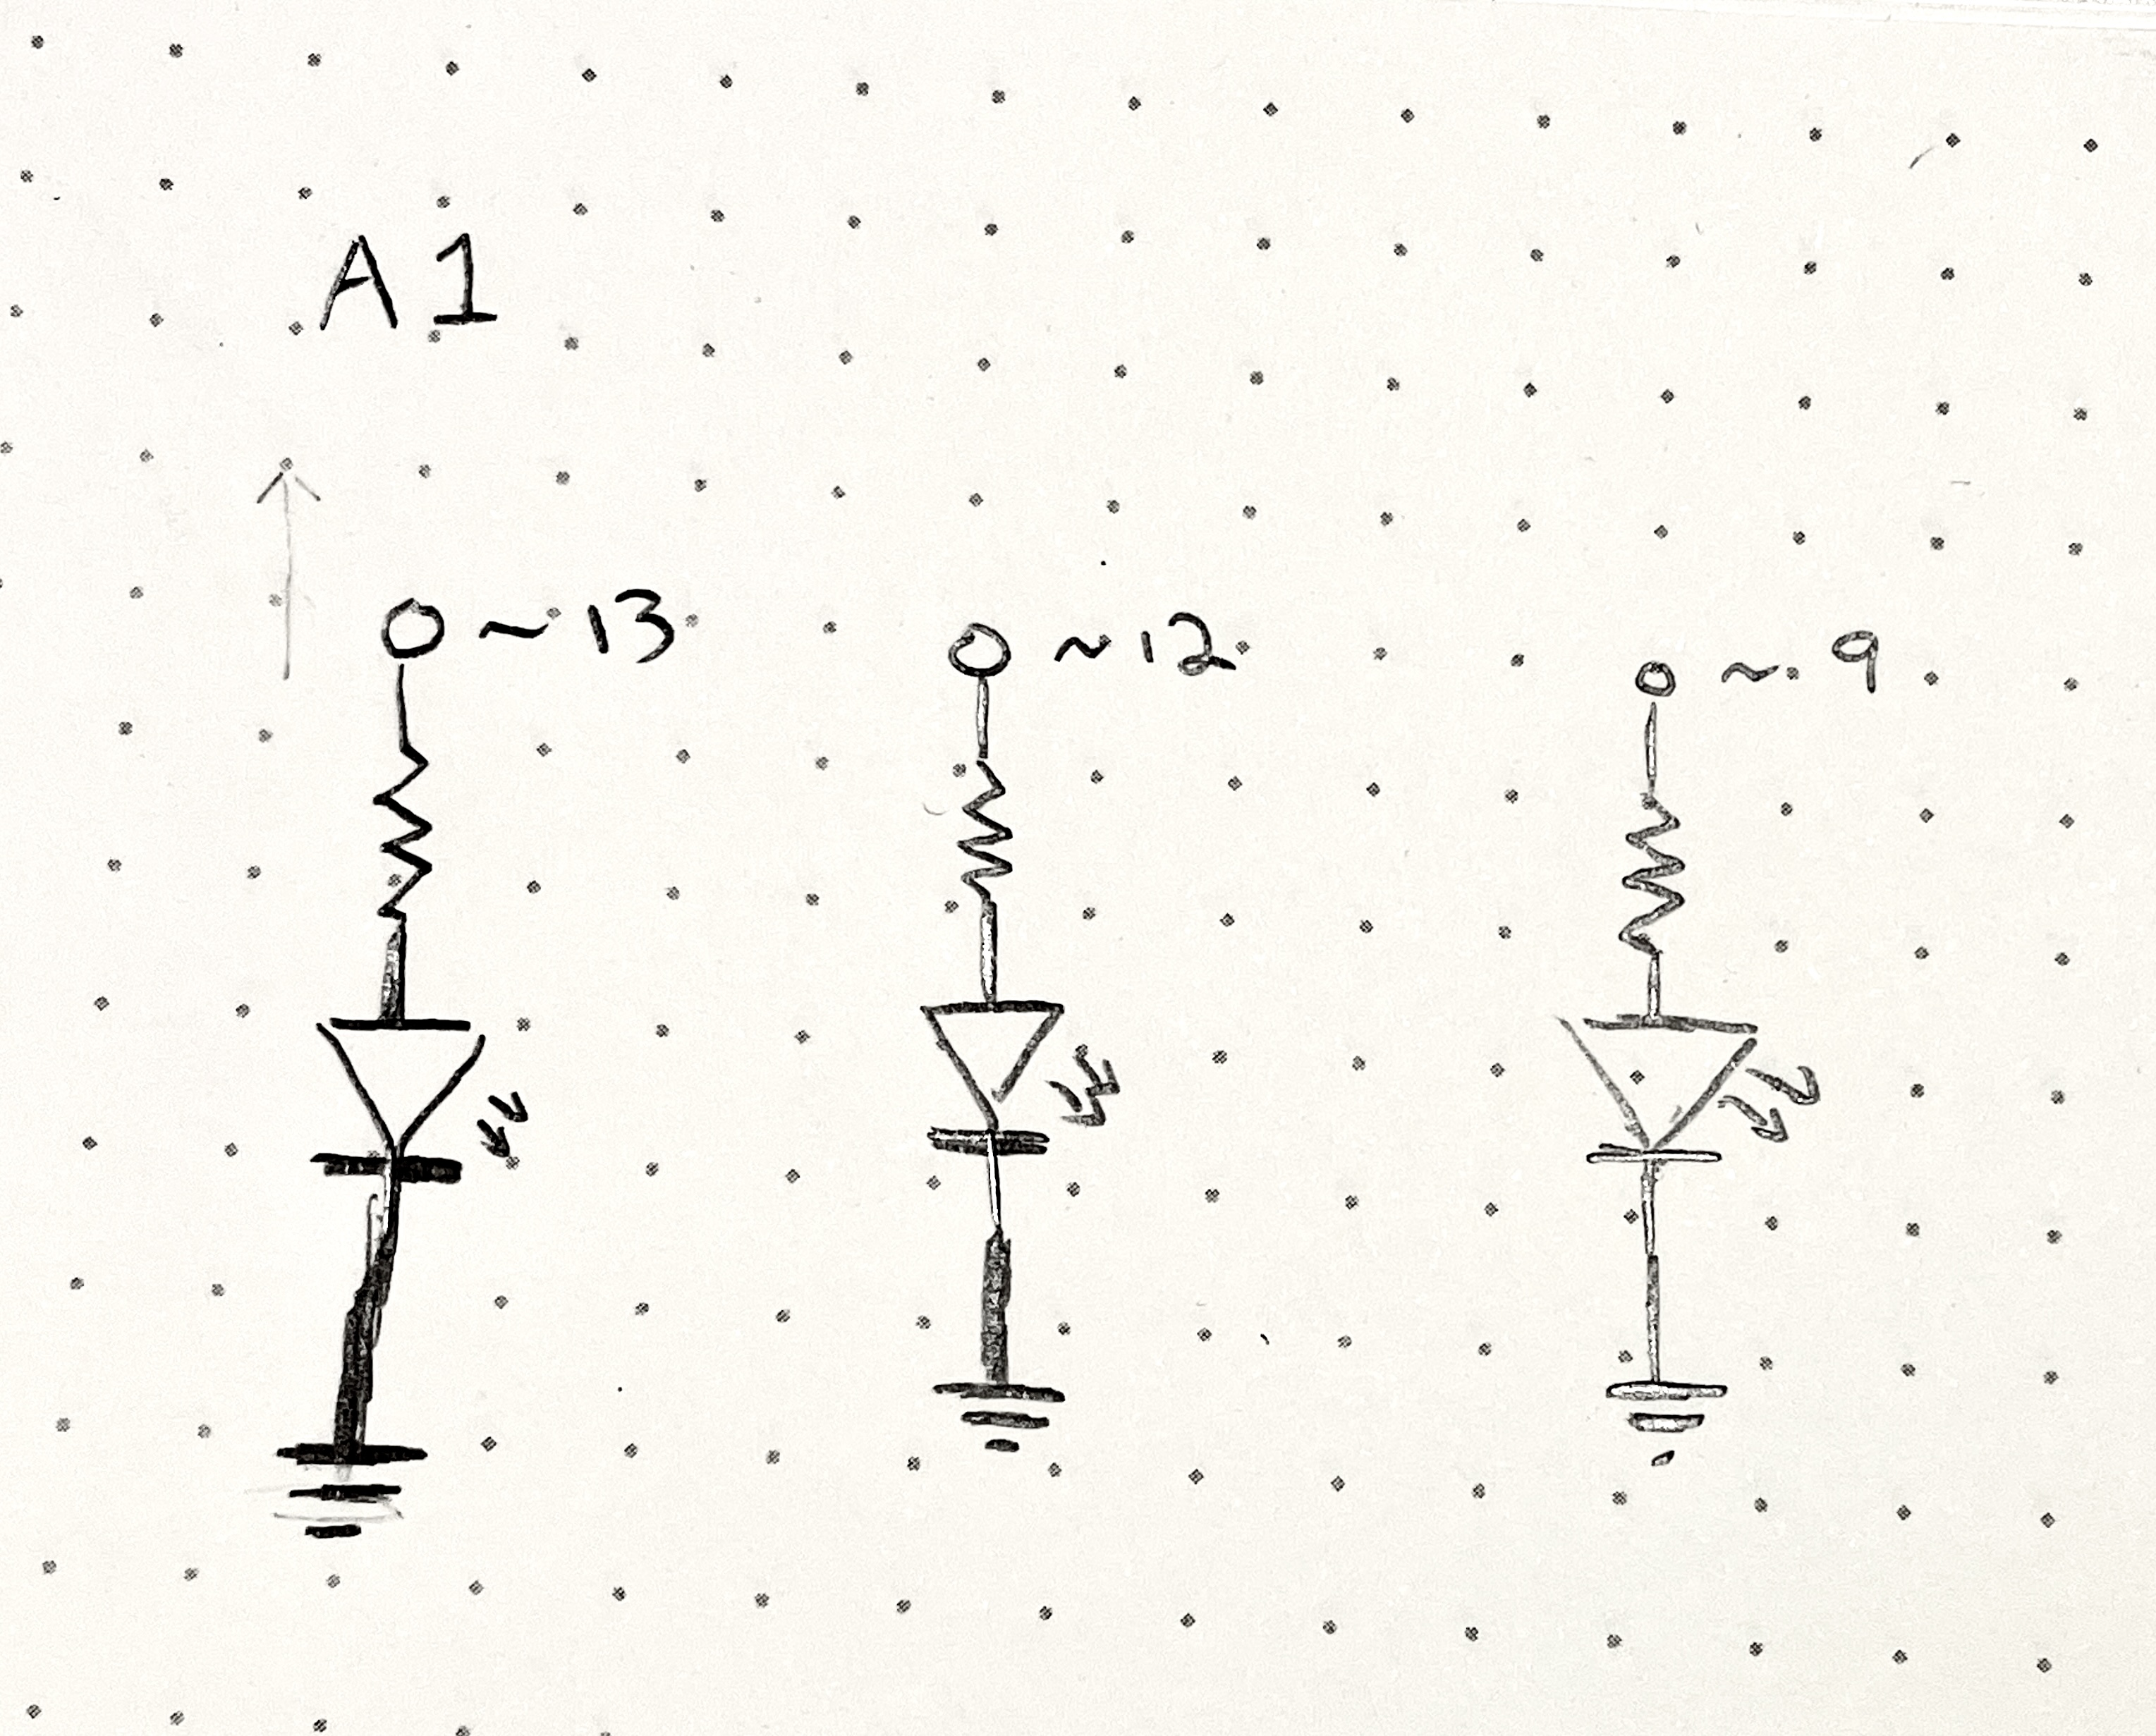 A1
~13
~12
~9